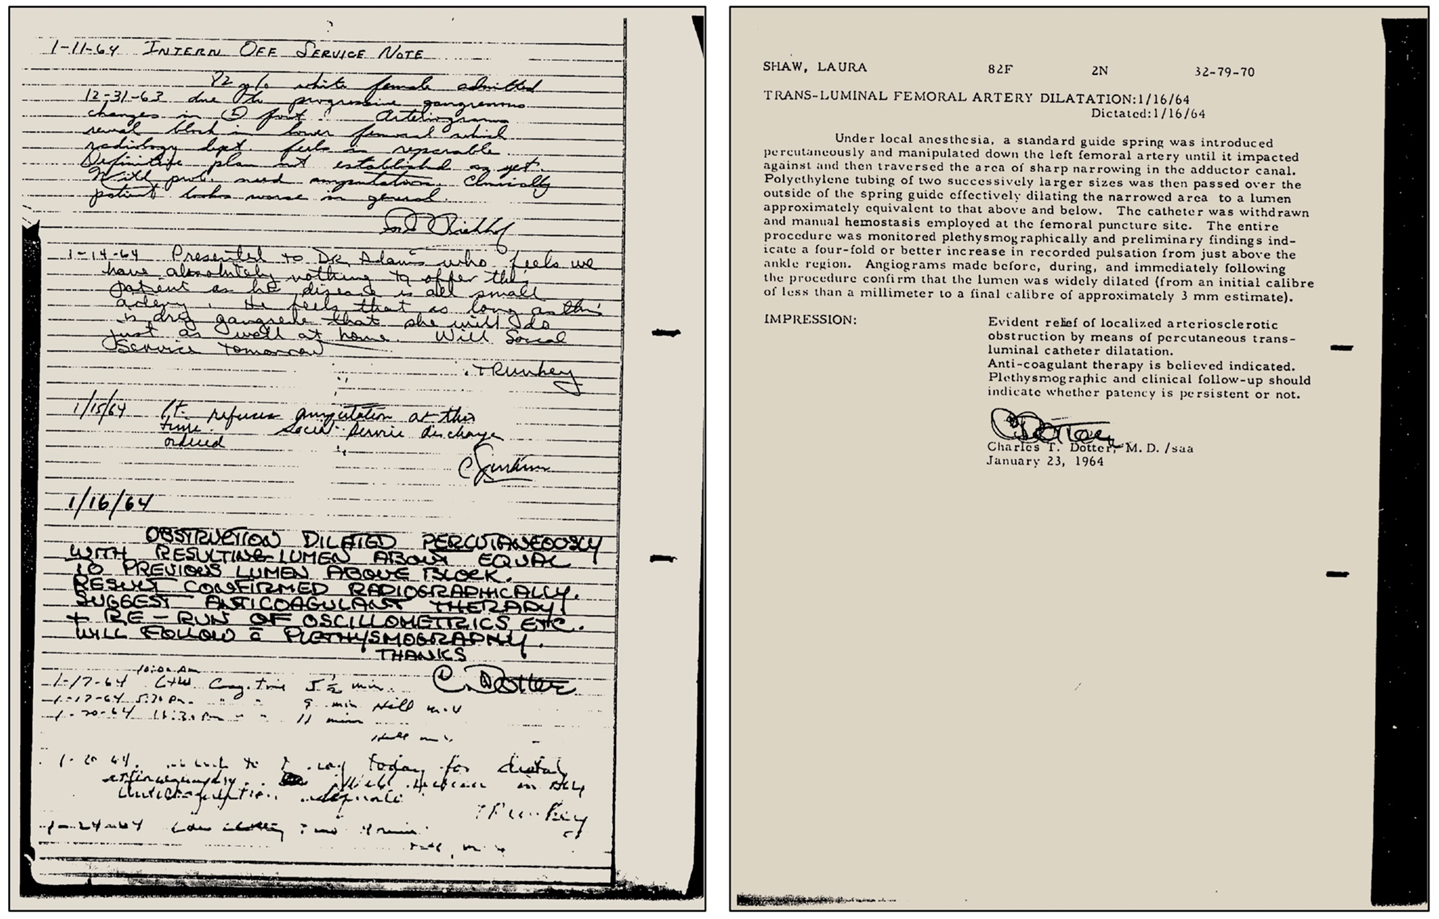 1-11-64 INTERN OFF SERVICE NOTE
82 y/o white female admitted
12-31-63 due to progressive gangrenous
changes in Ⓛ foot. Arteriograms
reveal block in lower femoral which
radiology dept feels is reparable.
Definitive plan not established as yet.
Will prob. need amputation. Clinically
patient looks worse in general.
1-14-64 Presented to Dr Adams who feels we
have absolutely nothing to offer this
patient as her disease is all small
artery. He feels that as long as this
is dry gangrene that she will do
just as well at home. Will Social
Service tomorrow
1/15/64 Pt. refuses amputation at this
time. Social Service discharge
ordered
1/16/64
OBSTRUCTION DILATED PERCUTANEOUSLY
WITH RESULTING LUMEN ABOUT EQUAL
TO PREVIOUS LUMEN ABOVE BLOCK.
RESULT CONFIRMED RADIOGRAPHICALLY.
SUGGEST ANTICOAGULANT THERAPY
+ RE-RUN OF OSCILLOMETRICS ETC.
WILL FOLLOW c̄ PLETHYSMOGRAPHY.
THANKS
C. Dotter
10:00 AM
1-17-64 L+W Coag. time 5 ½ min.
1-17-64 5:30 Pm. " " 9 min
1-20-64 11:30 pm " " 11 min
1-20-64 to today for
1-24-64 clotting
SHAW, LAURA 82F 2N 32-79-70
TRANS-LUMINAL FEMORAL ARTERY DILATATION:1/16/64
Dictated:1/16/64
Under local anesthesia, a standard guide spring was introduced
percutaneously and manipulated down the left femoral artery until it impacted
against and then traversed the area of sharp narrowing in the adductor canal.
Polyethylene tubing of two successively larger sizes was then passed over the
outside of the spring guide effectively dilating the narrowed area to a lumen
approximately equivalent to that above and below. The catheter was withdrawn
and manual hemostasis employed at the femoral puncture site. The entire
procedure was monitored plethysmographically and preliminary findings ind-
icate a four-fold or better increase in recorded pulsation from just above the
ankle region. Angiograms made before, during, and immediately following
the procedure confirm that the lumen was widely dilated (from an initial calibre
of less than a millimeter to a final calibre of approximately 3 mm estimate).
IMPRESSION: Evident relief of localized arteriosclerotic
obstruction by means of percutaneous trans-
luminal catheter dilatation.
Anti-coagulant therapy is believed indicated.
Plethysmographic and clinical follow-up should
indicate whether patency is persistent or not.
C Dotter
Charles T. Dotter, M.D./saa
January 23, 1964